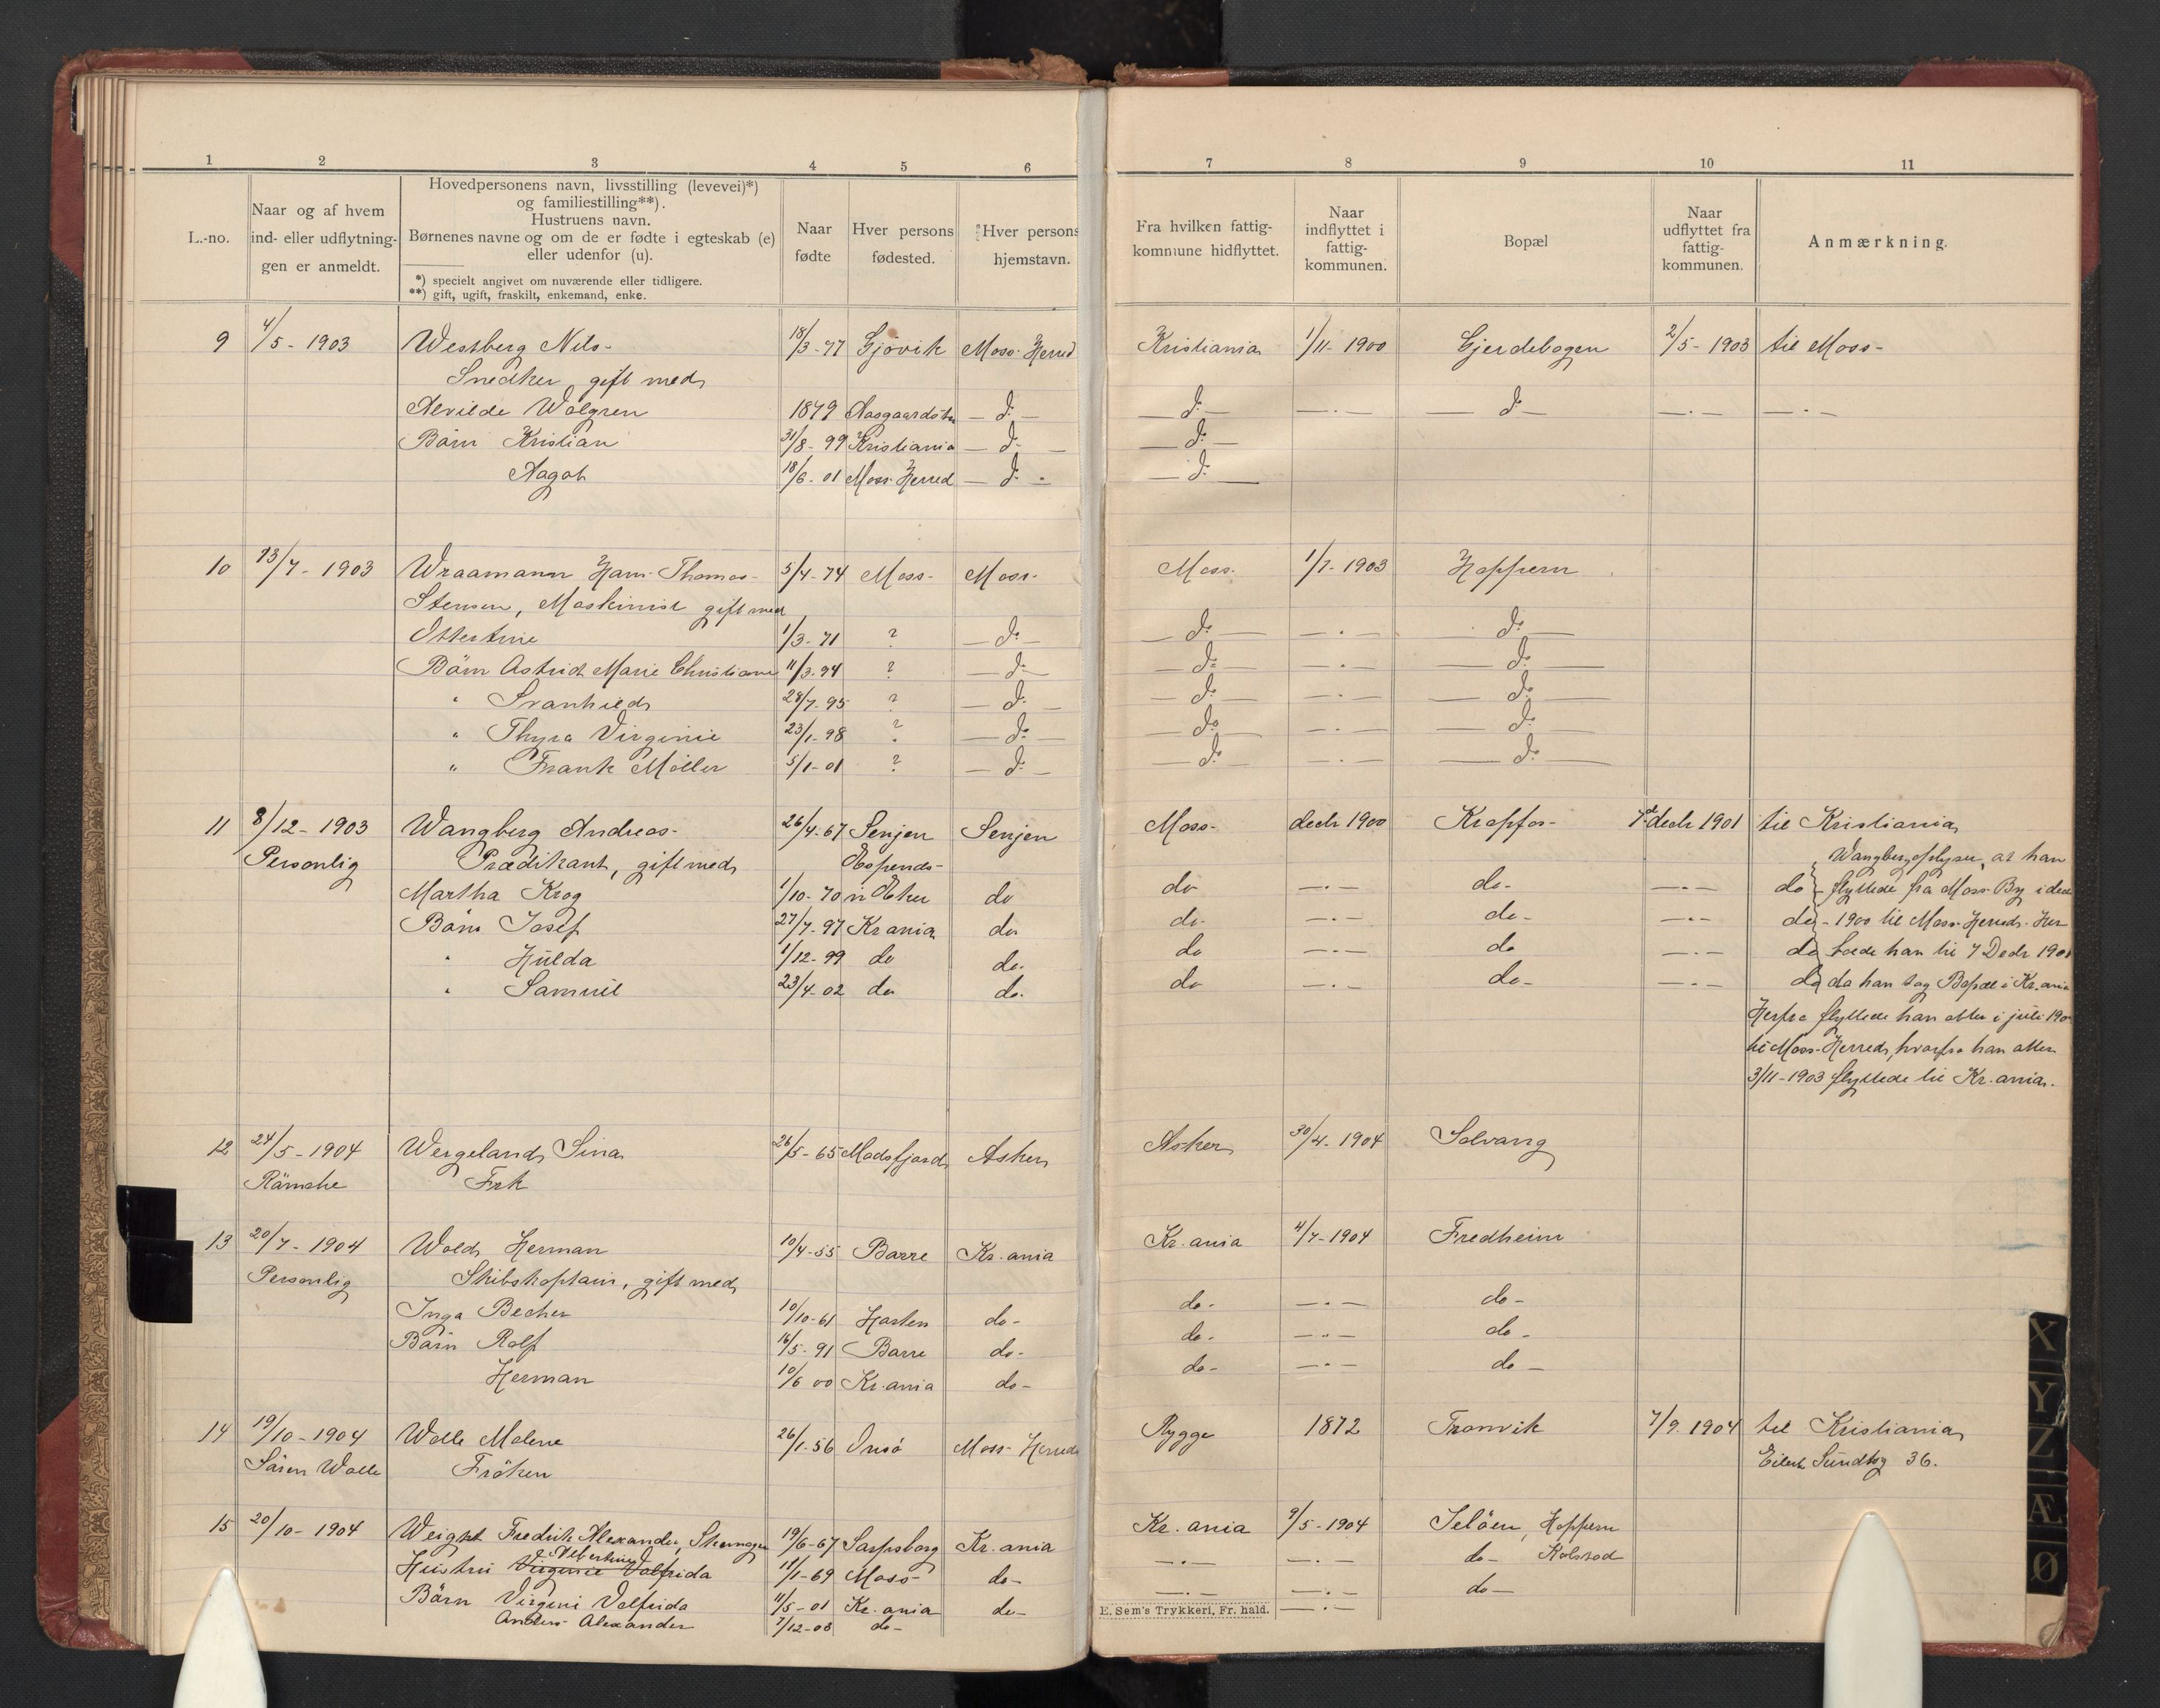 1 2 3 4 5 6 7 8 9 10 11
L.-no.
Naar og af hvem
ind- eller udflytnin-
gen er anmeldt.
Hovedpersonens navn, livsstilling (levevei)*)
og familiestilling**).
Hustruens navn.
Børnenes navne og om de er fødte i egteskab (e)
eller udenfor (u).
*) specielt angivet om nuværende eller tidligere.
**) gift, ugift, fraskilt, enkemand, enke.
Naar
fødte
Hver persons
fødested.
Hver persons
hjemstavn.
Fra hvilken fattig-
kommune hidflyttet.
Naar
indflyttet i
fattig-
kommunen.
Bopæl
Naar
udflyttet fra
fattig-
kommunen.
Anmærkning.
9 4/5 - 1903 Westberg Nils- 18/3-77 Gjøvik Moss Herred Kristiania 1/11- 1900 Gjerdebogen 2/5- 1903 til Moss-
Snedker, gift med
Alvilde Walgren 1879 Aasgaards — d: — — d: — —.— — d — —.— —.—
Børn Kristian 31/8-99 Kristiania — d: — — d: —
Aagot 18/6-01 Moss Herred — d: — — d: —
10 13/7 - 1903 Wraamann Hans Thomas- 5/4-74 Moss- Moss- Moss- 1/7-1903 Hoppern
Stensen, Maskinist gift med
1/3-71 ? — do — — do — —.— do —
Børn Astrid Marie Christiane 11/3-94 ? — do — — do — —.— — do —
" Svanhild 28/7-95 ? — do — — do — —.— — do —
" Thyra Virginie 23/1-98 ? — do — — do — —.— — do —
" Frank Møller 5/1-01 ? — do — — do — —.— — do —
11 8/12- 1903 Wangberg Andreas- 26/4-67 Senjen Senjen Moss- decbr 1900 Krapfos- 7de decbr 1901 til Kristiania
Personlig Prædikant, gift med Wangberg oplyser, at han
Martha Krog 1/10-70 do do —.— do- —.— do flyttede fra Moss By i decb
Børn Josef 27/7-97 Kr.ania do do- —.— do- —.— do - 1900 til Moss Herred. Her
" Hulda 1/12-99 do do- do —.— do —.— do boede han til 7 Decbr 1901
" Samuel 23/4-02 do do- do —.— do- —.— do da han tog Bopæl i Kr.ania
Herfra flyttede han atter i juli 190
til Moss Herred, hvorfra han atter
3/11-1903 flyttede til Kr.ania.
12 24/5- 1904 Wergeland Sina 26/5-65 Modsfjord Asker Asker 30/4-1904 Solvang
Rämche Frk
13 20/7- 1904 Wold Herman 10/4-55 Barre Kr.ania Kr.ania 4/7-1904 Fredheim
Personlig Skibskaptain, gift med
Inga Becher 10/10-61 do- do- —.— do-
Børn Rolf 16/5-91 Barre do- do- —.— do-
Herman 10/6 00 Kr.ania do- do- —.— do-
14 19/10- 1904 Wolle Malene 26/1-56 Onsø Moss Herred Rygge 1872 Tronvik 7/9 1904 til Kristiania
Søren Wolle Frøken Eilert Sundtsg 36.
15 20/10- 1904 Weight Fredrik Alexander, 19/6-67 Sarpsborg Kr.ania Kr.ania 9/5-1904 Jeløen, Hoppern
Hustru Virginie Albertine Valfrida 11/1-69 Moss- do- —.— —.— do- Kolsrod
Børn Virgini Valfrida 11/5-01 Kr.ania do- —.— —.— do-
Anders Alexander 7/12-03 do- —.—
E. Sem's Trykkeri, Fr. hald.
X
Y
Z
Æ
Ø